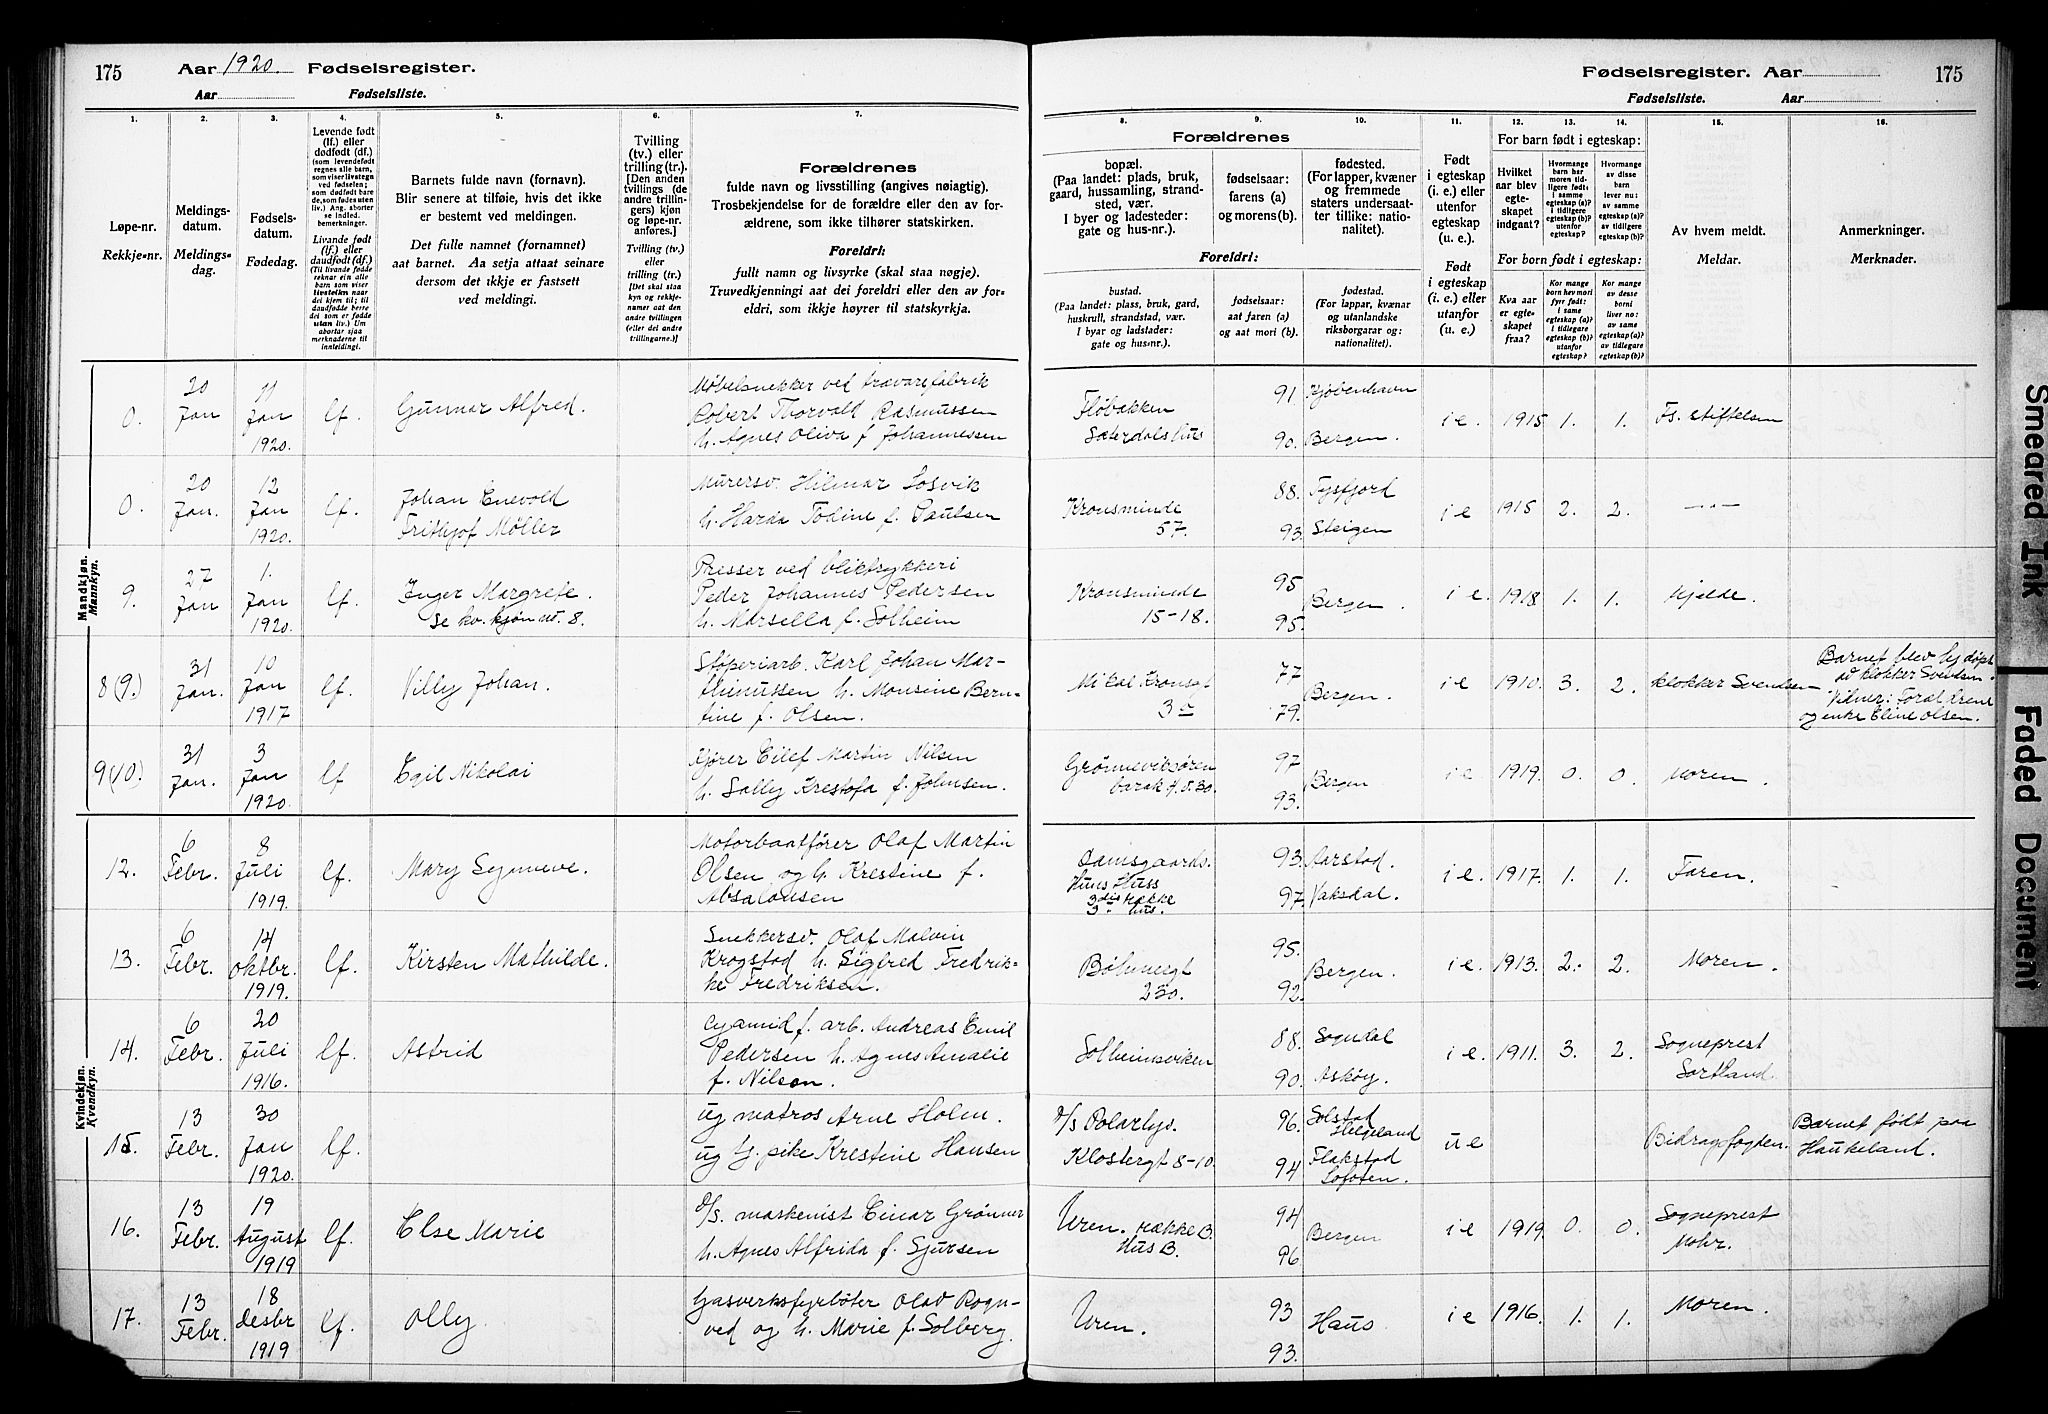 175 Aar 1920. Fødselsregister.
Aar Fødselsliste.
Fødselsregister. Aar 175
Fødselsliste. Aar
1. Løpe-nr. Rekkje-nr.
2. Meldings-datum. Meldings-dag.
3. Fødsels-datum. Fødedag.
4. Levende født (lf.) eller dødfødt (df.)
5. Barnets fulde navn (fornavn).
Blir senere at tilføie, hvis det ikke
er bestemt ved meldingen.
Det fulle namnet (fornamnet)
aat barnet. Aa setja attaat seinare
dersom det ikkje er fastsett
ved meldingi.
6. Tvilling (tv.) eller trilling (tr.).
[Den anden tvillings (de andre trillingers) kjøn og løpe-nr. anføres.]
Tvilling (tv.) eller trilling (tr.)
7. Forældrenes
fulde navn og livsstilling (angives nøiagtig).
Trosbekjendelse for de forældre eller den av forældrene, som ikke tilhører statskirken.
Foreldri:
fullt namn og livsyrke (skal staa nøgje).
Truvedkjenningi aat dei foreldri eller den av foreldri, som ikkje høyrer til statskyrkja.
Forældrenes
8. bopæl.
(Paa landet: plads, bruk, gaard, hussamling, strandsted, vær.
I byer og ladesteder: gate og hus-nr.).
Foreldri:
bustad.
(Paa landet: plass, bruk, gard, huskrull, strandstad, vær.
I byar og ladstader: gate og hus-nr.).
9. fødselsaar: farens (a) og morens (b).
fødselsaar: aat faren (a) og aat mori (b).
10. fødested.
(For lapper, kvæner og fremmede staters undersaatter tillike: nationalitet).
fødestad.
(For lappar, kvænar og utanlandske riksborgarar og: nationalitet).
11. Født i egteskap (i. e.) eller utenfor egteskap (u. e.).
Født i egteskap (i. e.) eller utanfor (u. e.)
For barn født i egteskap:
12. Hvilket aar blev egteskapet indgaat?
For born født i egteskap:
Kva aar er egteskapet fraa?
13.
14.
15. Av hvem meldt. Meldar.
16. Anmerkninger. Merknader.
Mandkjøn. Mannkyn.
0. 20 Jan 11 Jan 1920. lf. Gunnar Alfred.
Møbelsnekker ved trævarefabrik
Robert Thorvald Rasmussen
h. Agnes Oliva f Johannessen
Fløbakken Sæterdals hus 91 Kjøbenhavn 90. Bergen. i e. 1915 1. 1. Fs. stiftelsen
0. 20 Jan. 12 Jan 1920. lf. Johan Enevold
Frithjof Møller
Murersv. Hilmar Losvik
h. Harda Todine f. Paulsen
Kronsminde 57. 88. Tysfjord 93. Steigen i e 1915 2. 2. -"-
9. 27 Jan 1. Jan 1920. lf. Inger Margrete.
se kv. kjøn nr. 8.
Presser ved bliktrykkeri
Peder Johannes Pedersen
h. Marsella f. Solheim
Kronsminde 15-18. 95 Bergen. 95. i e. 1918 1. 1. Kjelde.
8(9.) 31 Jan. 10 Jan 1917 lf. Villy Johan.
Støperiarb. Karl Johan Mar-
thinussen h. Monsine Bern-
tine f. Olsen.
Mikal Kronsgt 3 77 Bergen. 79. i e 1910. 3. 2. klokker Svendsen
Barnet blev hj døpt
av klokker Svendsen.
Vidner: Foræeldrene
og enke Eline Olsen.
9(10.) 31 Jan. 3 Jan 1920. lf Egil Nikolai
Kjører Eilef Martin Nilsen
h. Sally Krestofa f. Johnsen.
Grønneviksøren barak 30. 97 Bergen 93. i e 1919. 0. 0. Moren.
Kvindekjøn. Kvendkyn.
12. 6 Febr. 8 Juli 1919. lf. Mary Synneve.
Motorbaatfører Olaf Martin
Olsen og h. Krestine f.
Absalonsen
Damsgaards. Huns Huss 3die række 3. hus. 93. Aarstad. 97. Vaksdal. i e. 1917. 1. 1. Faren.
13. 6 Febr. 14 oktbr. 1919. lf. Kirsten Mathilde.
Snekkersv. Olaf Malvin
Krogstad h. Sigfred Fredrik-
ke Fredriksen.
Bøhmergt 230. 95. Bergen. 92. i e. 1913. 2. 2. Moren.
14. 6 Febr. 20 Juli 1916. lf. Astrid
Cyamid f. arb. Andreas Emil
Pedersen h. Agnes Amalie
f. Nilsen.
Solheimsviken 88. Sogndal 90. Askøy. i e. 1911. 3. 2. Sogneprest Sortland.
15. 13 Febr. 30 Jan 1920. lf.
ug matros Arne Holm.
ug h. pike Krestine Hansen
D/S Polarlys. Klostergt 8-10. 96. Solstad Helgeland 94 Flakstad Lofoten. u e Bidragsfogden.
Barnet født paa
Haukeland.
16. 13 Febr. 19 August 1919 lf. Else Marie
D/S. maskenist Einar Grønner
h. Agnes Alfrida f. Sjursen
Uren. række B. Hus B. 94 Bergen 96 i e 1919. 0. 0. Sogneprest Mohr.
17. 13 Febr. 18 desbr 1919 lf. Olly
Gasverksfyrbøter Olav Rogn-
ved og h. Marie f. Solberg.
Uren. 93 Haus 93. i e 1916. 1. 1. Moren.
Smeared Ink
Faded Document